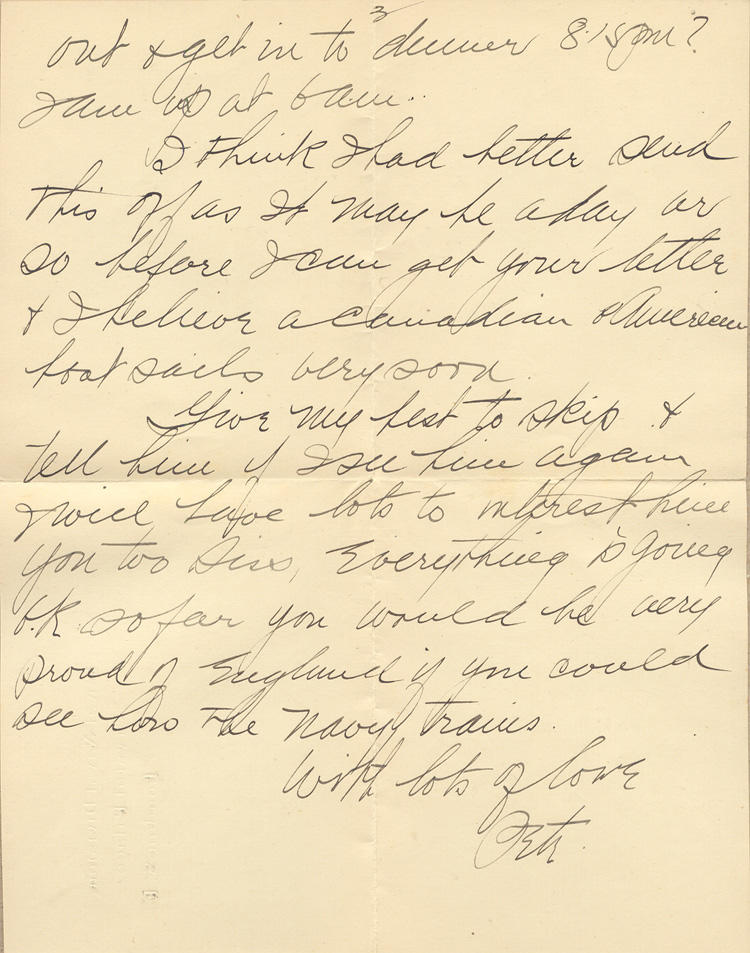 3
out & get in to dinner 8:15pm?
I am up at 6 am..
I think I had better send
this off as It may be a day or
so before I can get your letter
& I believe a Canadian & American
boat sails very soon.
Give my best to Skip &
tell him if I see him again
I will have lots to interest him
you too Siss, Everything is going
O.K. so far you would be very
proud of England if you could
see how the Navy trains.
With lots of love
Pete.